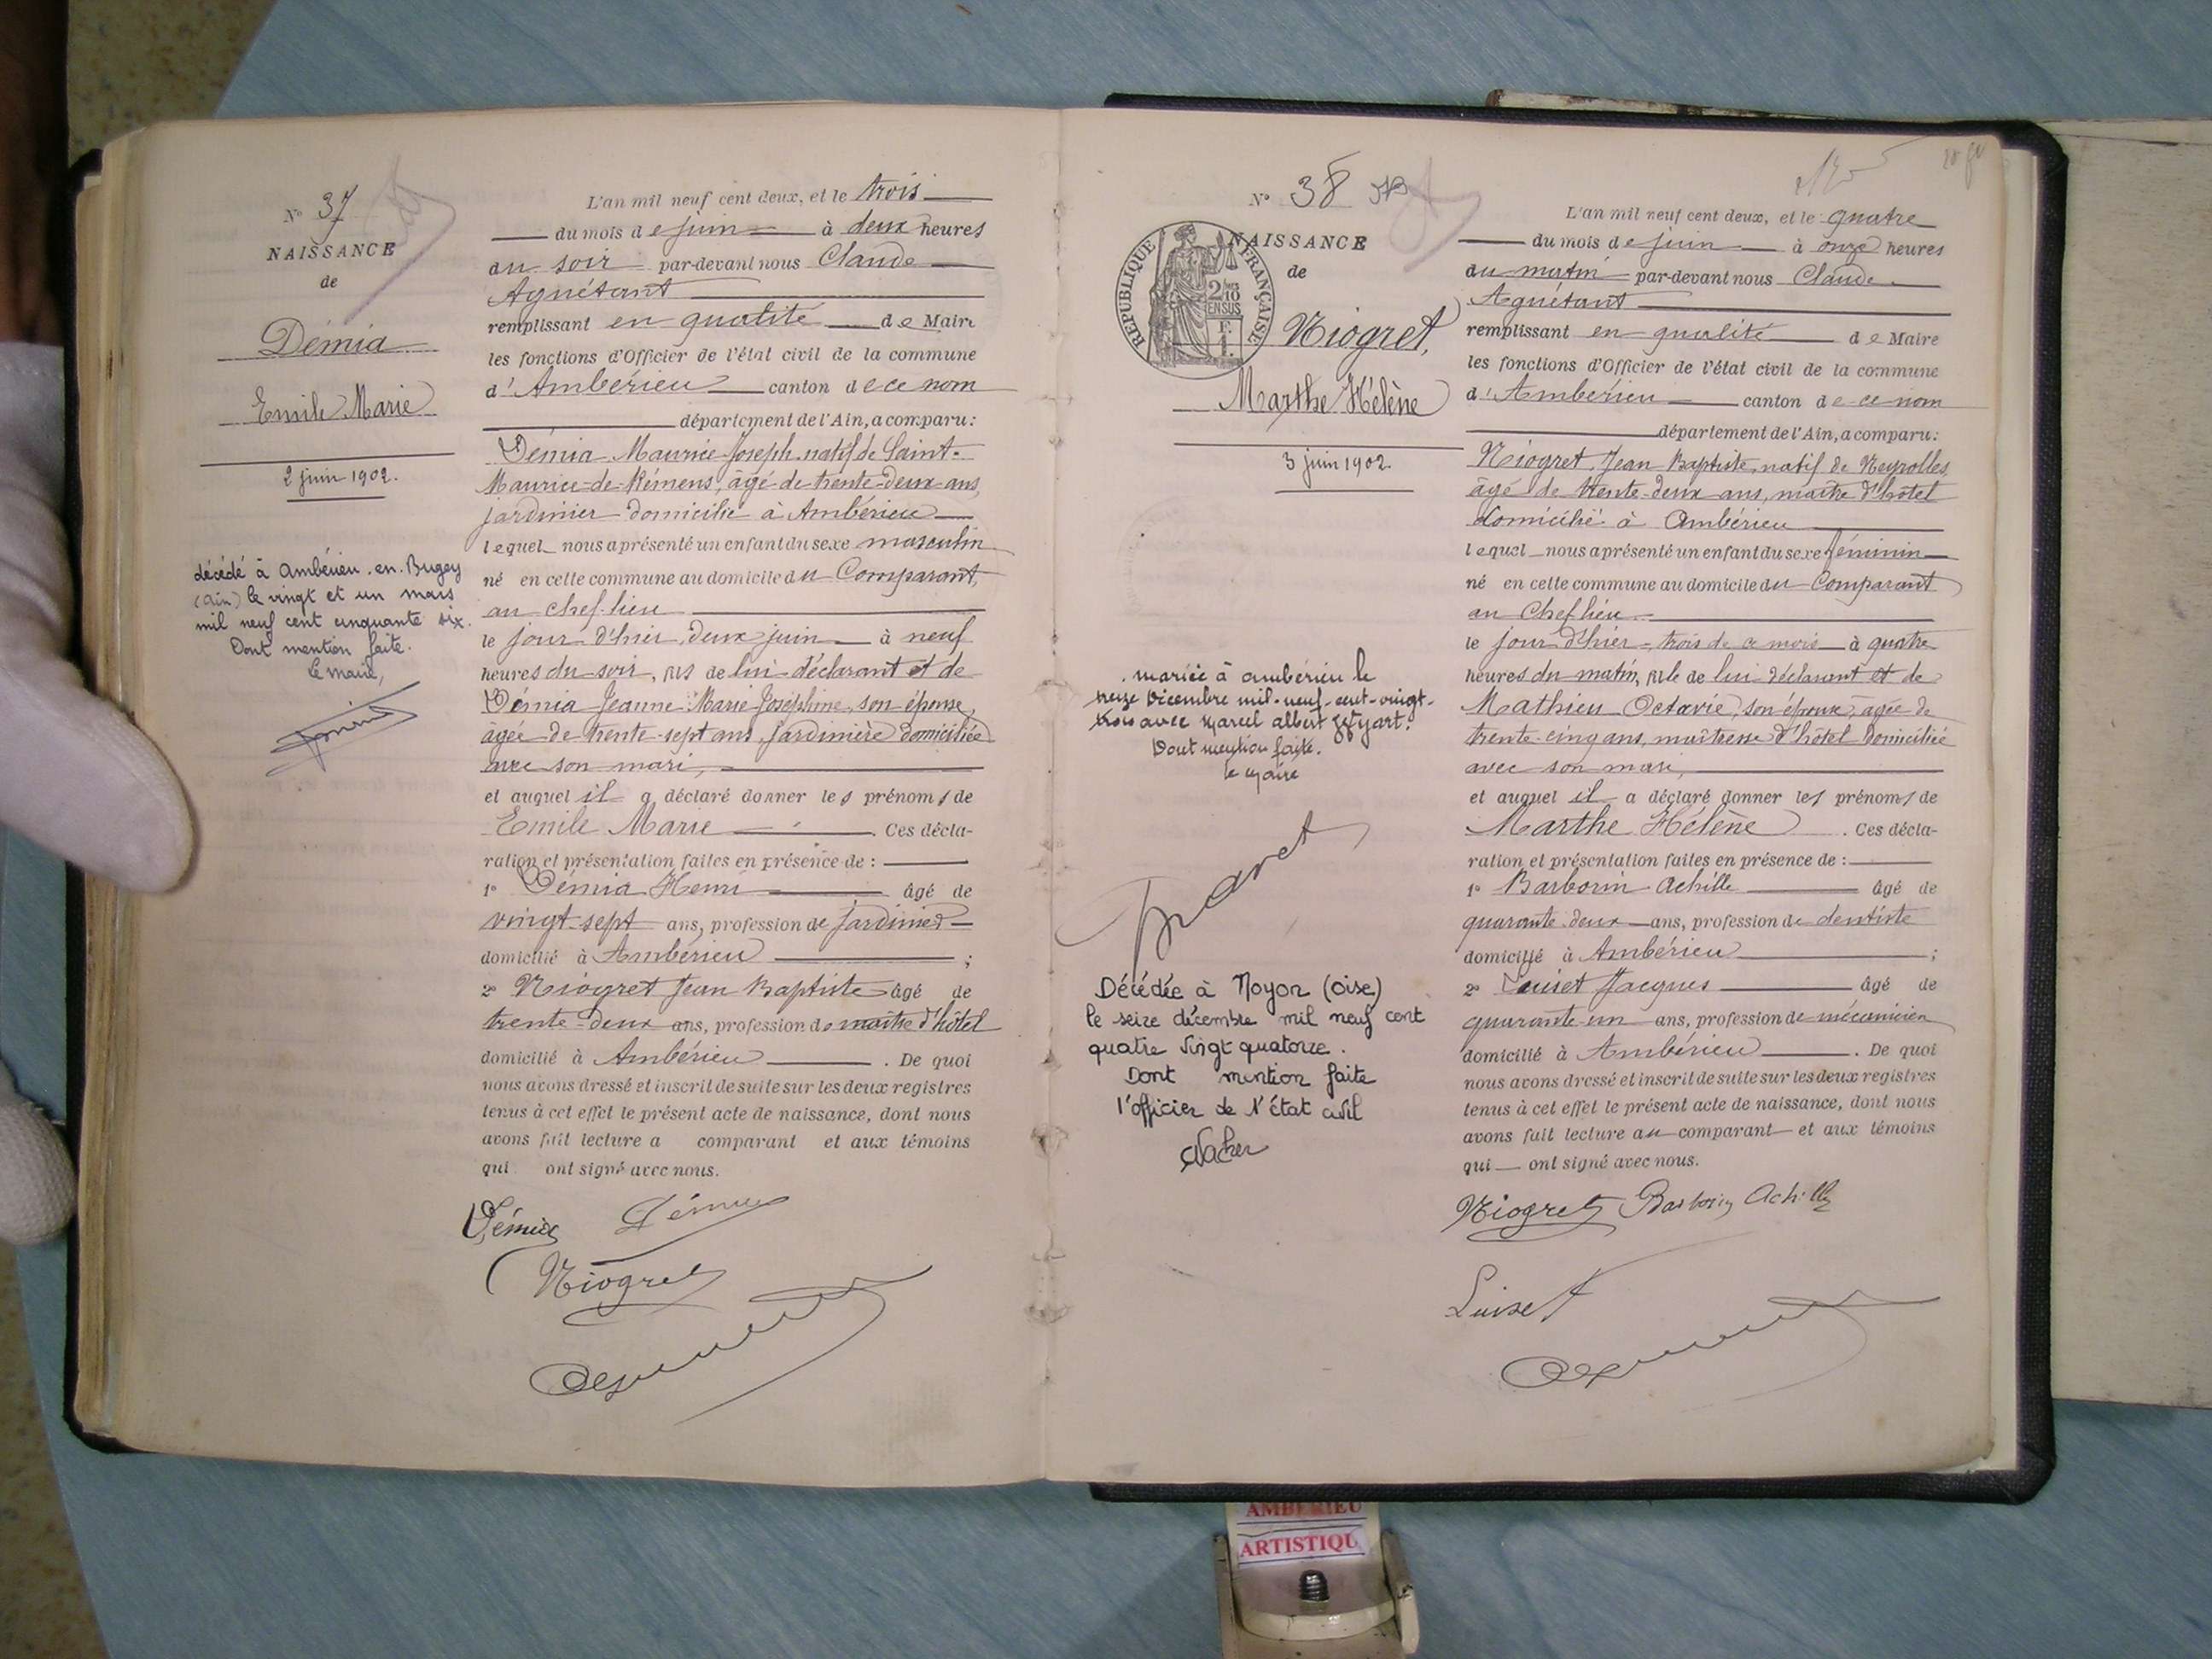 N° 37
NAISSANCE
de
Démia
Emile Marie
2 juin 1902.
décédé à Ambérieu-en-Bugey
(Ain) le vingt et un mars
mil neuf cent cinquante six.
Dont mention faite.
Le maire,
L'an mil neuf cent deux, et le trois
du mois de juin à deux heures
du soir par-devant nous Claude
Aguétant
remplissant en qualité de Maire
les fonctions d'Officier de l'état civil de la commune
d'Ambérieu canton de ce nom
département de l'Ain, a comparu :
Démia Maurice Joseph natif de Saint-
Maurice-de-Rémens, âgé de trente-deux ans,
jardinier domicilié à Ambérieu
lequel nous a présenté un enfant du sexe masculin
né en cette commune au domicile du Comparant,
au chef-lieu
le jour d'hier, deux juin à neuf
heures du soir, fils de lui déclarant et de
Démia Jeanne Marie Joséphine, son épouse,
âgée de trente-sept ans, jardinière domiciliée
avec son mari,
et auquel il a déclaré donner les prénoms de
Emile Marie . Ces décla-
ration et présentation faites en présence de :
1° Démia Henri âgé de
vingt-sept ans, profession de jardinier
domicilié à Ambérieu ;
2° Niogret Jean Baptiste âgé de
trente-deux ans, profession de maître d'hôtel
domicilié à Ambérieu . De quoi
nous avons dressé et inscrit de suite sur les deux registres
tenus à cet effet le présent acte de naissance, dont nous
avons fait lecture a comparant et aux témoins
qui ont signé avec nous.
Démia Démia
Niogret
N° 38
NAISSANCE
de
RÉPUBLIQUE FRANÇAISE
2/10
EN SUS
Niogret,
Marthe Hélène
3 juin 1902.
mariée à Ambérieu le
treize Décembre mil-neuf-cent-vingt-
trois avec Marcel Albert
Dont mention faite.
le Maire
Décédée à Noyon (Oise)
le seize décembre mil neuf cent
quatre vingt quatorze.
Dont mention faite
l'officier de l'état civil
L'an mil neuf cent deux, et le quatre
du mois de juin à onze heures
du matin par-devant nous Claude
Aguétant
remplissant en qualité de Maire
les fonctions d'Officier de l'état civil de la commune
d'Ambérieu canton de ce nom
département de l'Ain, a comparu :
Niogret Jean Baptiste, natif de Neyrolles
âgé de trente-deux ans, maître d'hôtel
domicilié à Ambérieu
lequel nous a présenté un enfant du sexe féminin
né en cette commune au domicile du Comparant
au Chef lieu
le jour d'hier, trois de ce mois à quatre
heures du matin, fille de lui déclarant et de
Mathieu Octavie, son épouse, âgée de
trente-cinq ans, maîtresse d'hôtel domiciliée
avec son mari,
et auquel il a déclaré donner les prénoms de
Marthe Hélène . Ces décla-
ration et présentation faites en présence de :
1° Barborin Achille âgé de
quarante-deux ans, profession de dentiste
domicilié à Ambérieu ;
2° Luiset Jacques âgé de
quarante-un ans, profession de mécanicien
domicilié à Ambérieu . De quoi
nous avons dressé et inscrit de suite sur les deux registres
tenus à cet effet le présent acte de naissance, dont nous
avons fait lecture au comparant et aux témoins
qui ont signé avec nous.
Niogret Barborin Achille
Luiset
AMBERIEU
ARTISTIQU